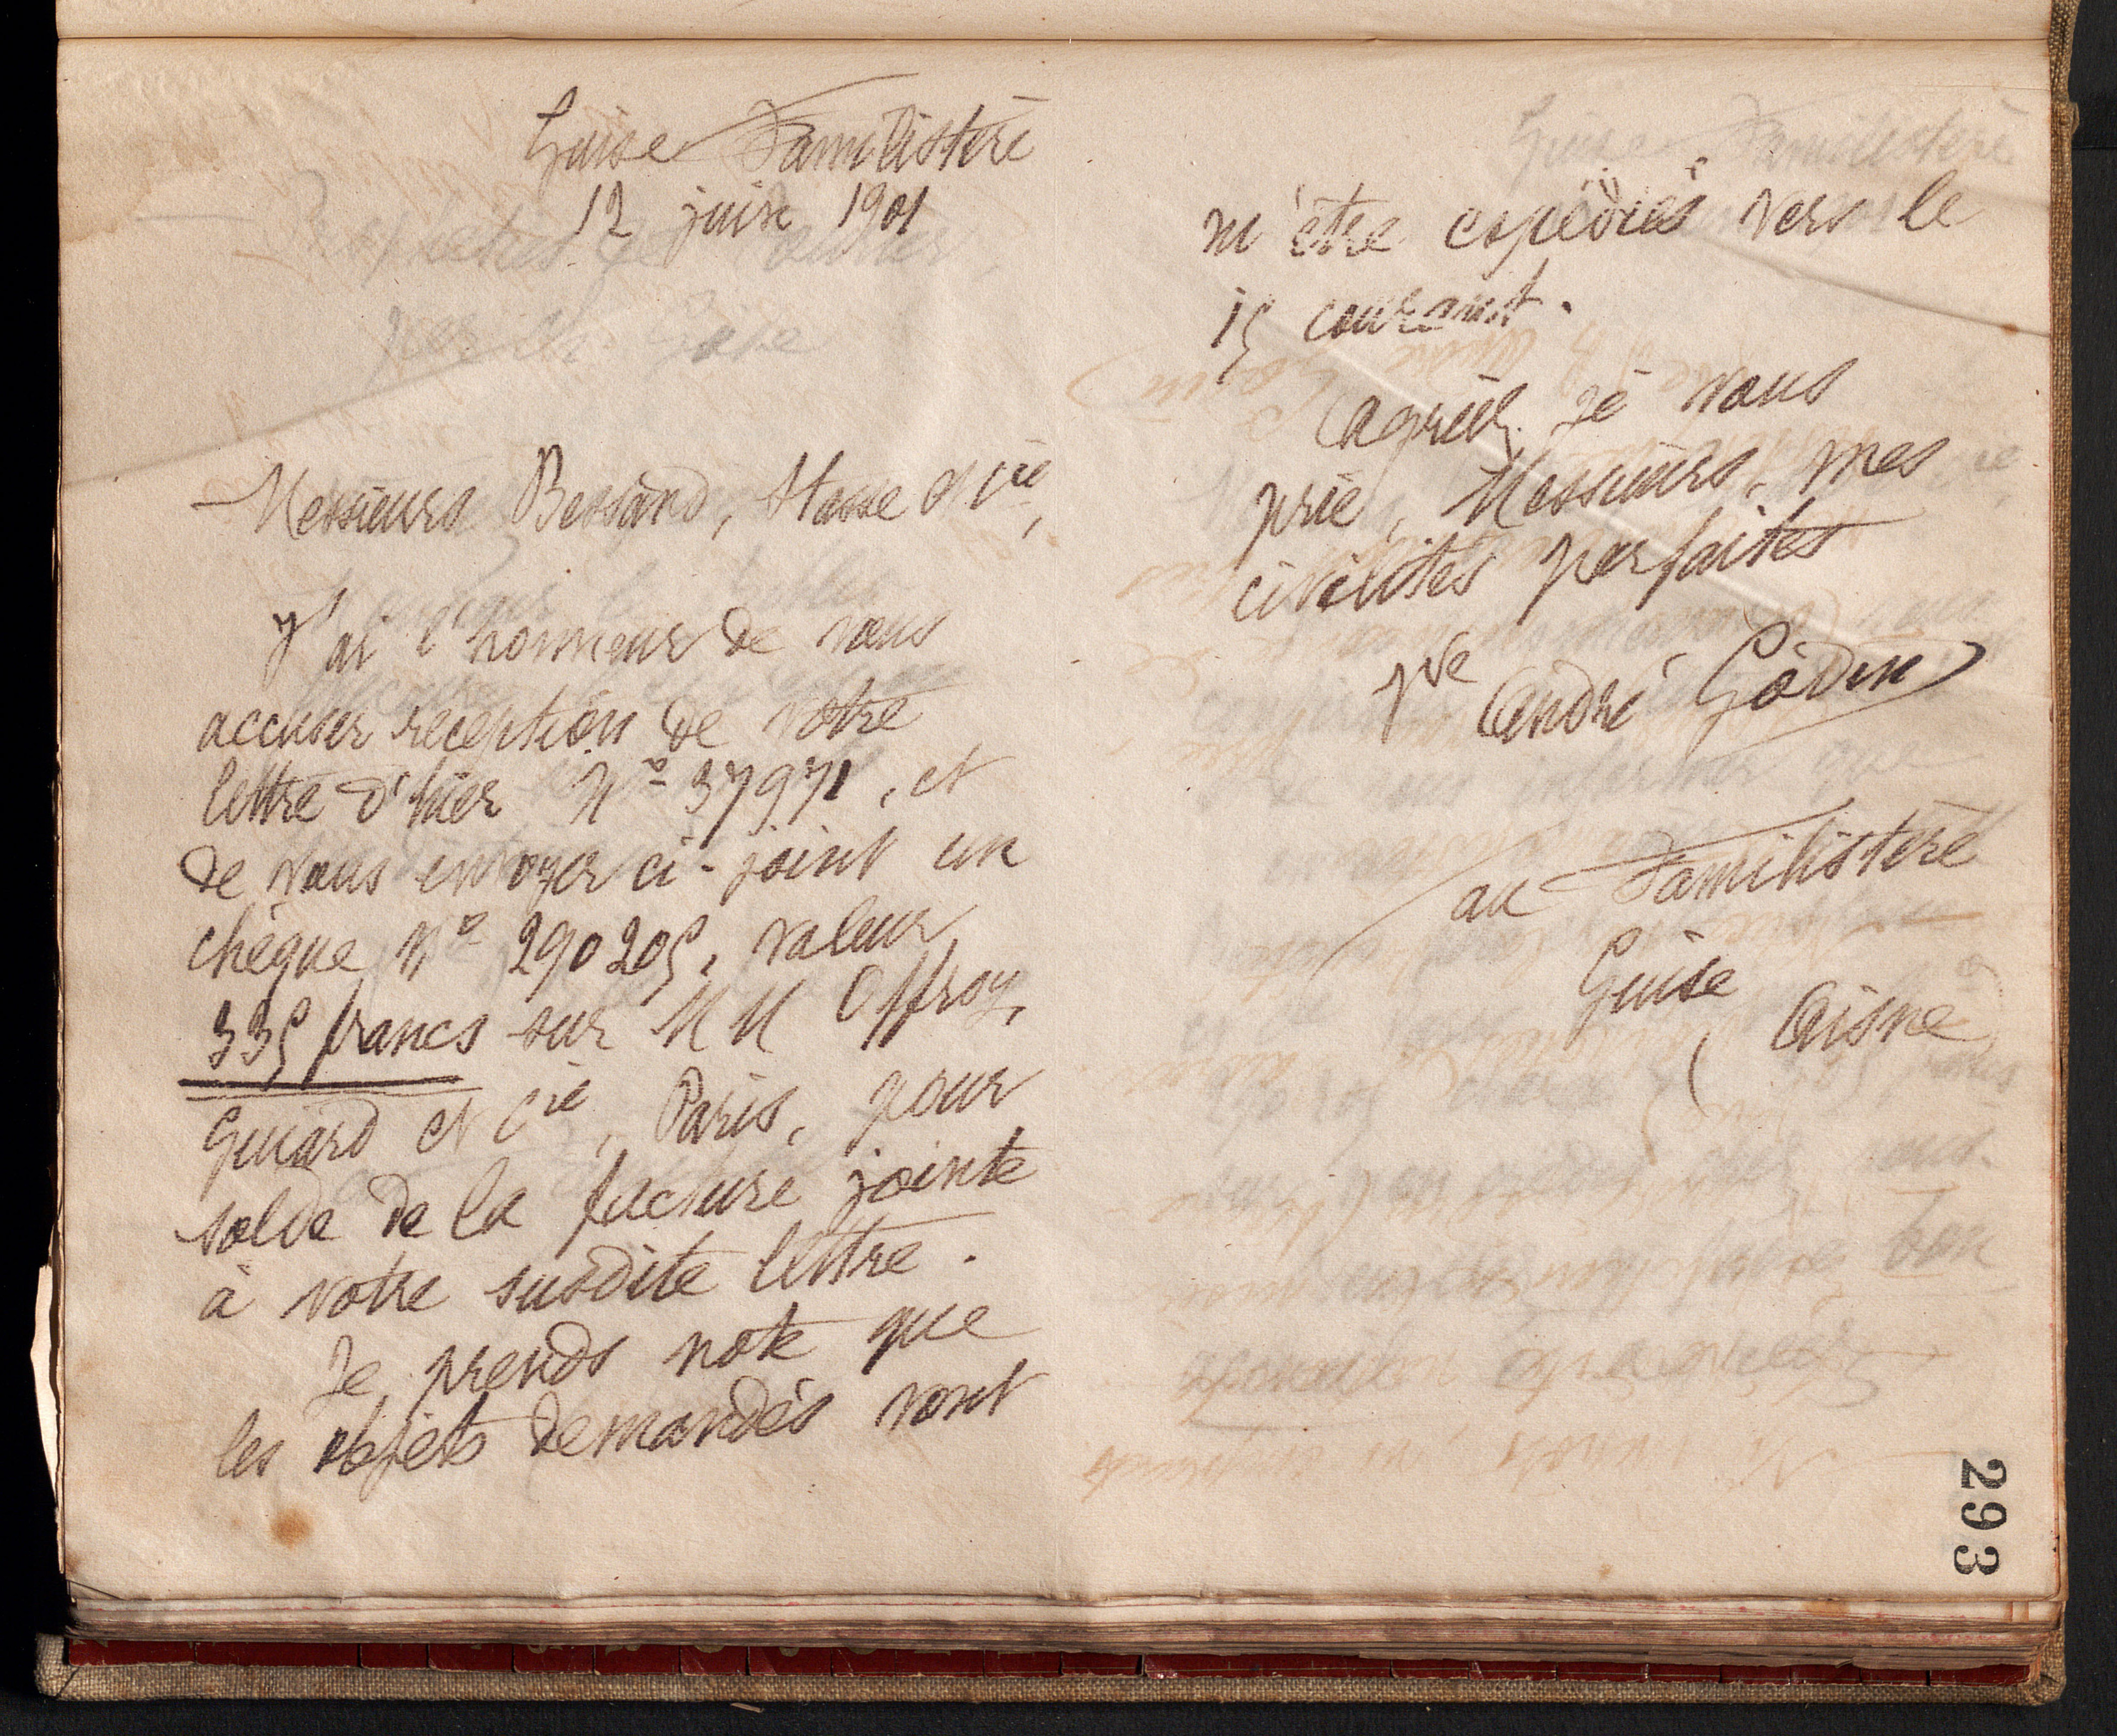 Guise Familistère
12 juin 1901
Messieurs Bessand, Stasse et Cie,
J'ai l'honneur de vous
accuser réception de votre
lettre d'hier No 37971, et
de vous envoyer ci-joint un
chèque No 290205, valeur
335 francs sur MM Offroy,
Guiard et Cie, Paris, pour
solde de la facture jointe
à votre susdite lettre.
Je prends note que
les objets demandés vont
m'être expédiés vers le
15 courant.
Agréez, je vous
prie, Messieurs, mes
civilités parfaites
Vve André Godin
au Familistère
Guise
Aisne
293